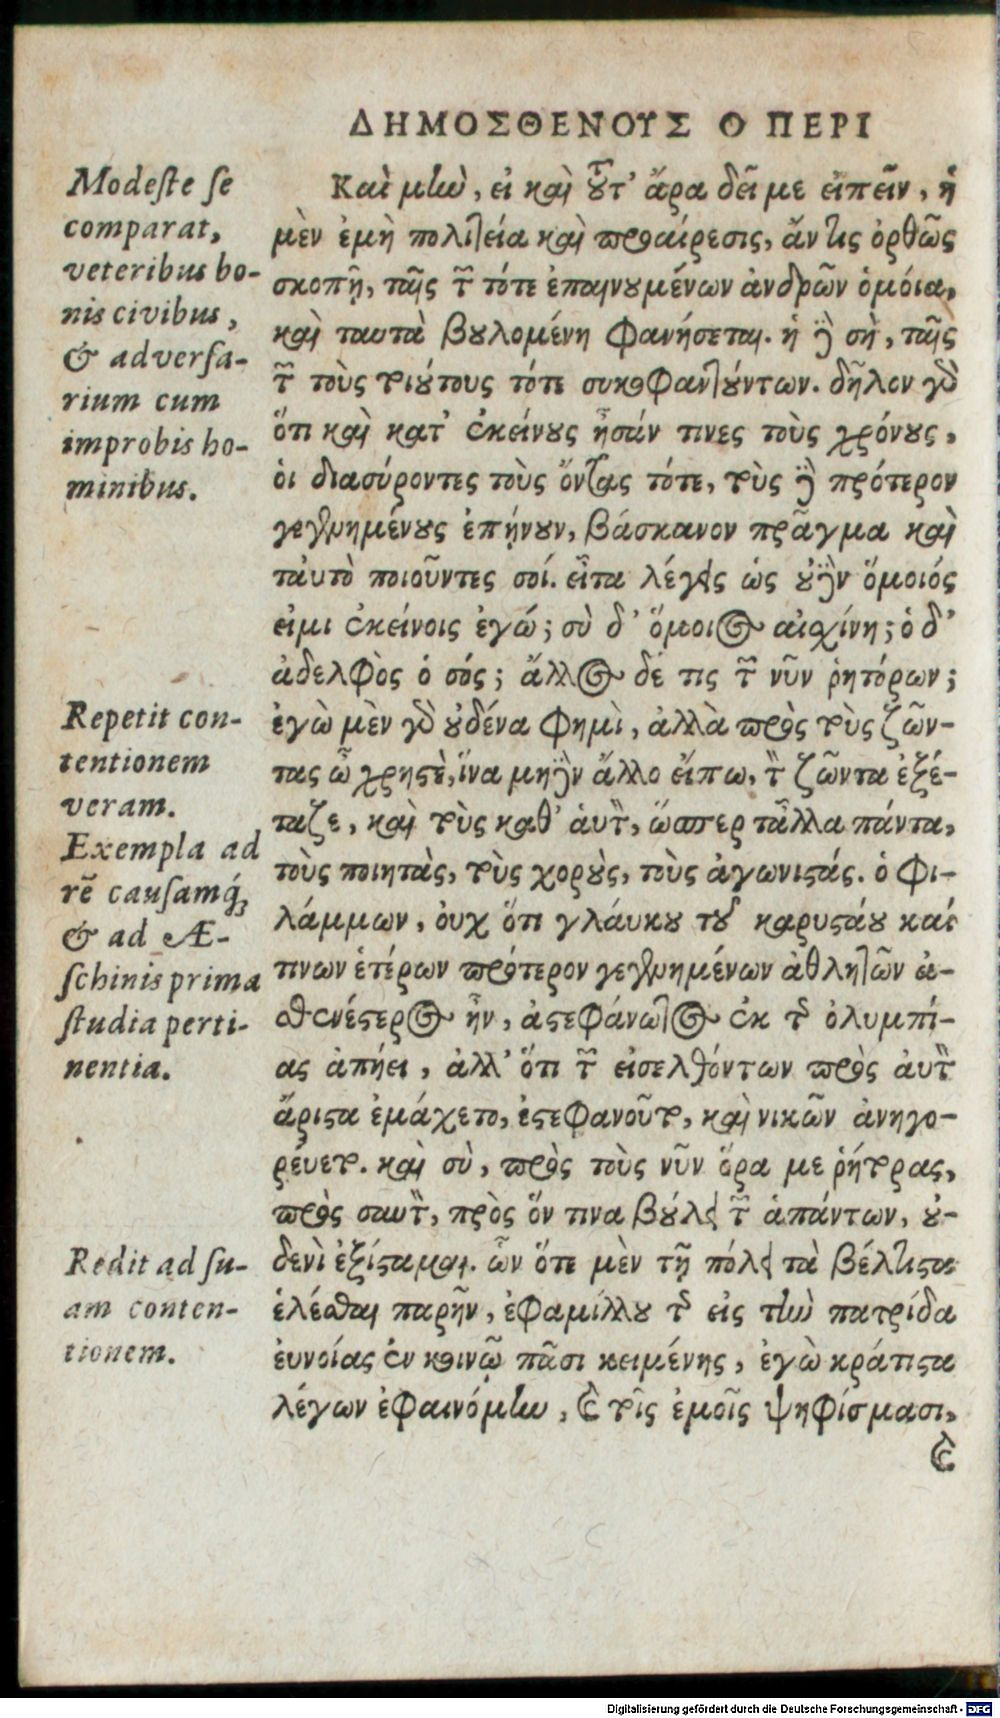 ΔΗΜΟΣΘΕΝΟΥΣ Ο ΠΕΡΙ
Modeste se
comparat,
veteribus bo-
nis civibus,
& adversa-
rium cum
improbis ho-
minibus.
Repetit con-
tentionem
veram.
Exempla ad
rẽ causamq́;
& ad Æ-
schinis prima
studia perti-
nentia.
Redit ad su-
am conten-
tionem.
Καὶ μὴν, εἰ καὶ τοῦτ' ἄρα δεῖ με εἰπεῖν, ἡ
μὲν ἐμὴ πολιτεία καὶ προαίρεσις, ἄν τις ὀρθῶς
σκοπῇ, ταῖς τῶν τότε ἐπαινουμένων ἀνδρῶν ὁμόια,
καὶ ταυτὰ βουλομένη φανήσεται. ἡ δὲ σὴ, ταῖς
τῶν τοὺς τοιούτους τότε συκοφαντούντων. δῆλον γὰρ
ὅτι καὶ κατ' ἐκείνους ἦσάν τινες τοὺς χρόνους,
οἱ διασύροντες τοὺς ὄντας τότε, τοὺς δὲ πρότερον
γεγενημένους ἐπῄνουν, βάσκανον πρᾶγμα καὶ
ταὐτὸ ποιοῦντες σοί. εἶτα λέγεις ὡς οὐδὲν ὅμοιός
εἰμι ἐκείνοις ἐγώ; σὺ δ' ὅμοιος αἰσχίνη; ὁ δ'
ἀδελφὸς ὁ σός; ἄλλος δέ τις τῶν νῦν ῥητόρων;
ἐγὼ μὲν γὰρ οὐδένα φημὶ, ἀλλὰ πρὸς τοὺς ζῶν-
τας ὦ χρηστὲ, ἵνα μηδὲν ἄλλο εἴπω, τὸν ζῶντα ἐξέ-
ταζε, καὶ τοὺς καθ' ἁυτὸν, ὥσπερ τἆλλα πάντα,
τοὺς ποιητὰς, τοὺς χοροὺς, τοὺς ἀγωνιστάς. ὁ Φι-
λάμμων, ὀυχ ὅτι γλάυκου τοῦ καρυστίου καί
τινων ἑτέρων πρότερον γεγενημένων ἀθλητῶν ἀ-
σθενέστερος ἦν, ἀστεφάνωτος ἐκ τῆς ὀλυμπί-
ας ἀπῄει, ἀλλ' ὅτι τῶν εἰσελθόντων πρὸς ἀυτὸν
ἄριστα ἐμάχετο, ἐστεφανοῦτο, καὶ νικῶν ἀνηγο-
ρέυετο. καὶ σὺ, πρὸς τοὺς νῦν ὅρα με ῥήτορας,
πρὸς σαυτὸν, πρὸς ὅν τινα βούλει τῶν ἁπάντων, οὐ-
δενὶ ἐξίσταμαι. ὧν ὅτε μὲν τῇ πόλει τὰ βέλτιστα
ἑλέσθαι παρῆν, ἐφαμίλλου τῆς εἰς τὴν πατρίδα
ἐυνοίας ἐν κοινῷ πᾶσι κειμένης, ἐγὼ κράτιστα
λέγων ἐφαινόμην, καὶ τοῖς ἐμοῖς ψηφίσμασι,
καὶ
Digitalisierung gefördert durch die Deutsche Forschungsgemeinschaft - DFG